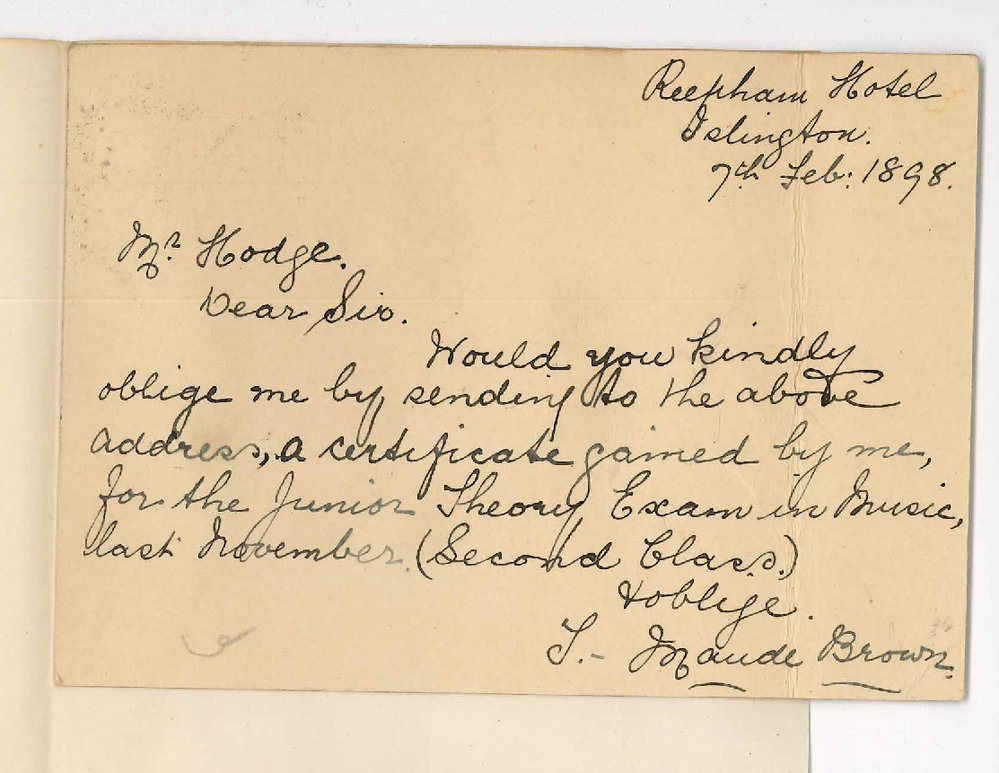 Reepham Hotel
Islington.
7th Feb: 1898.
Mr Hodge.
Dear Sir.
Would you kindly
oblige me by sending to the above
address, a certificate gained by me,
for the Junior Theory Exam in Music,
last November. (Second Class.)
& oblige.
T.- Maude Brown.